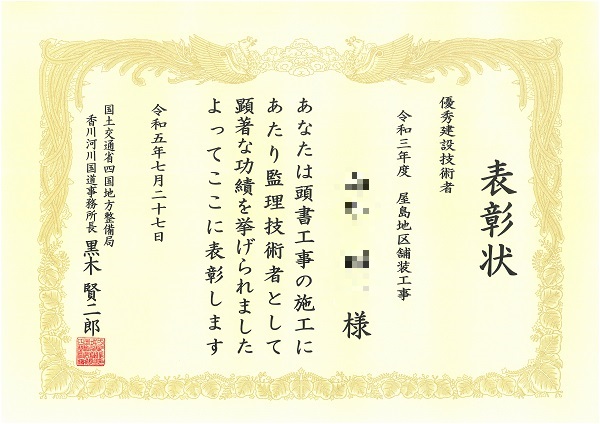 表彰状
優秀建設技術者
令和三年度 屋島地区舗装工事
様
あなたは頭書工事の施工に
あたり監理技術者として
顕著な功績を挙げられました
よってここに表彰します
令和五年七月二十七日
国土交通省四国地方整備局
香川河川国道事務所長 黒木 賢二郎